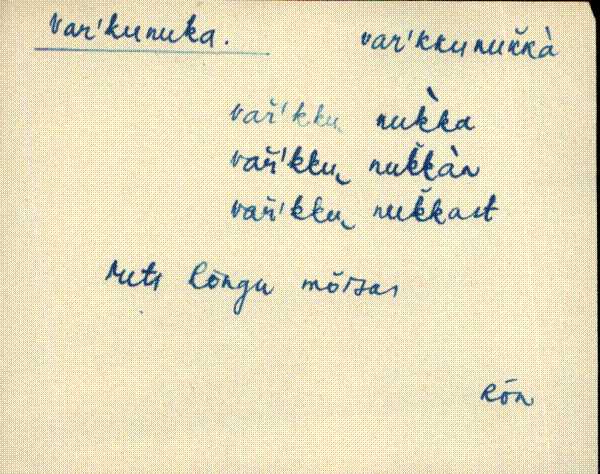 var'kunuka. var'kkunuk̆kà
vař'kku nuk̀ka
vař'kku nuk̆kàn
vař'kku nuk̆kast
Mets Rõngu mõisas
Rõn